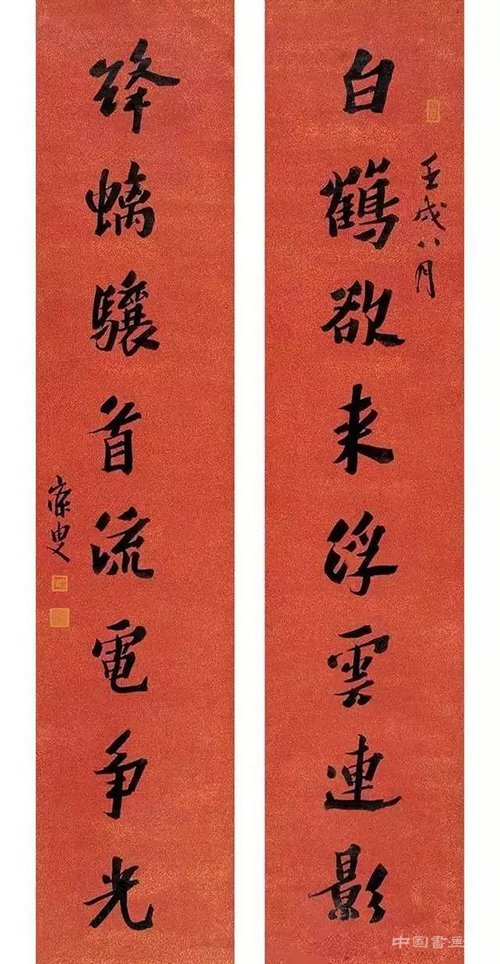 白鶴欲来浮雲連影
壬戌八月
絳螭驤首流電争光
寐叟
中國書画